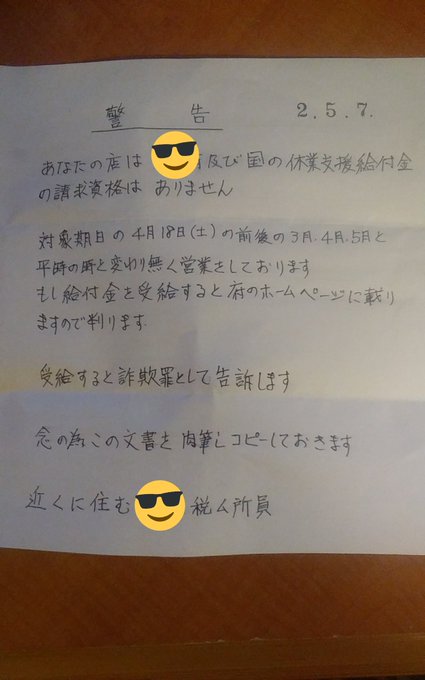 警 告 2.5.7.
あなたの店は 及び国の休業支援給付金
の請求資格は ありません
対象期日の4月18日(土)の前後の3月.4月.5月と
平時の時と変わり無く営業をしております
もし給付金を受給すると府のホームページに載り
ますので判ります.
受給すると詐欺罪として告訴します
念の為この文書を肉筆しコピーしておきます
近くに住む 税ム所員